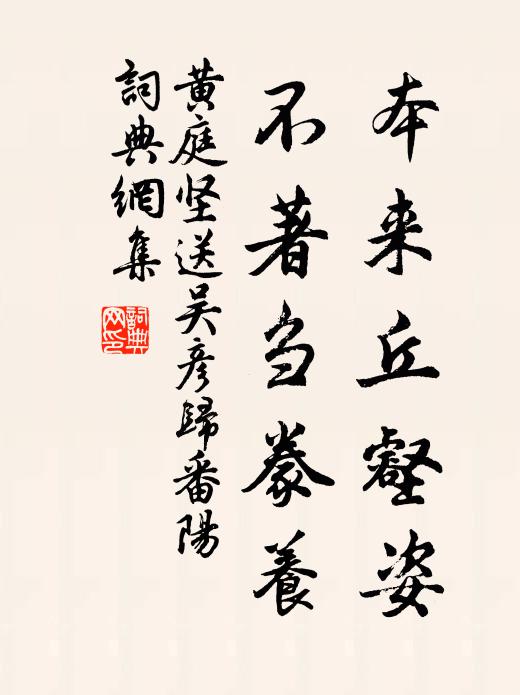 本来丘壑姿
不著芻豢養
黄庭坚送吴彦歸番陽
詞典網集
詞典
网印